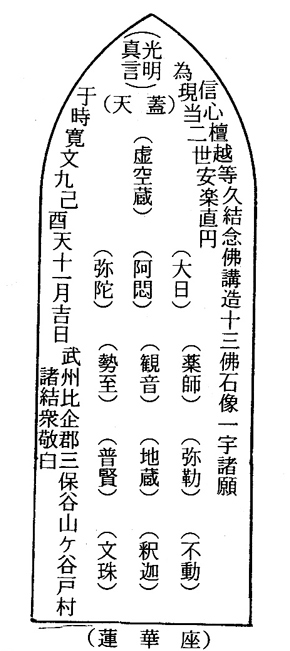 (光明
真言)
(天蓋)
信心檀越等久結念佛講造十三佛石像一宇諸願
為現当二世安楽直円
(大日)(薬師)(弥勒)(不動)
(虚空蔵)(阿悶)(観音)(地蔵)(釈迦)
(弥陀)(勢至)(普賢)(文珠)
于時寛文九己酉天十一月吉日
武州比企郡三保谷山ケ谷戸村
諸結衆敬白
(蓮華座)